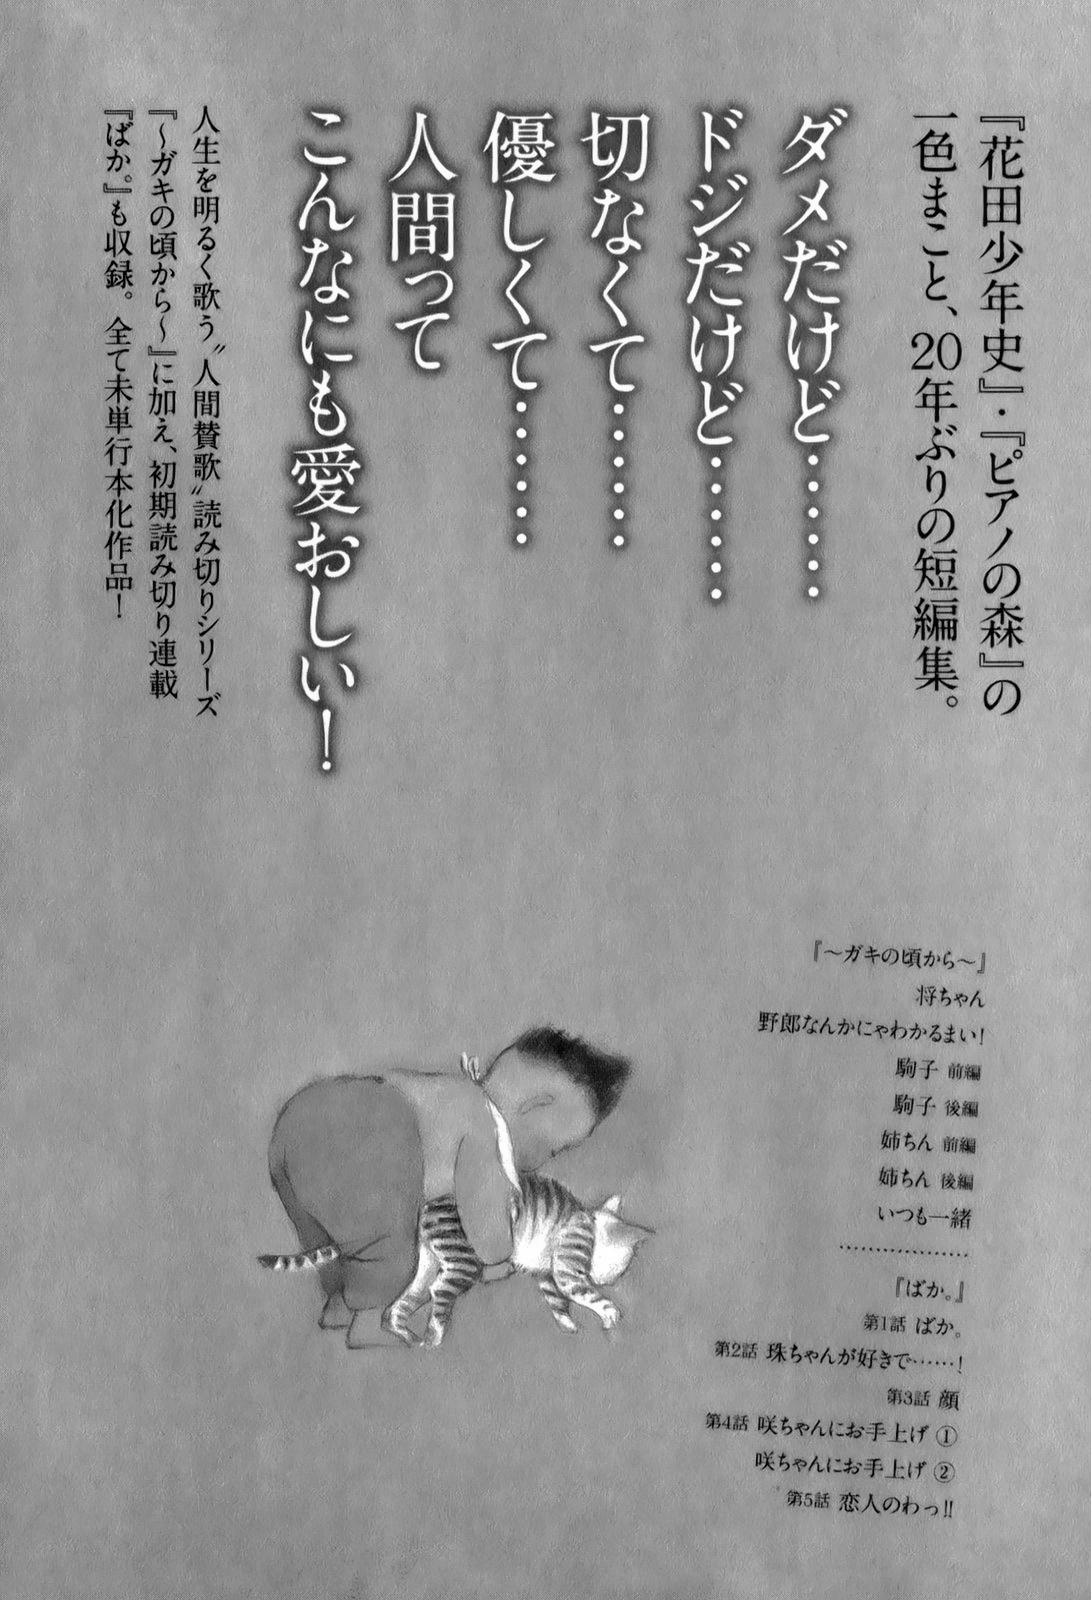 『花田少年史』・『ピアノの森』の
一色まこと、20年ぶりの短編集。
ダメだけど……
ドジだけど……
切なくて……
優しくて……
人間って
こんなにも愛おしい！
人生を明るく歌う〝人間賛歌〟読み切りシリーズ
『〜ガキの頃から〜』に加え、初期読み切り連載
『ばか。』も収録。全て未単行本化作品！
『〜ガキの頃から〜』
将ちゃん
野郎なんかにゃわかるまい！
駒子 前編
駒子 後編
姉ちん 前編
姉ちん 後編
いつも一緒
『ばか。』
第1話 ばか。
第2話 珠ちゃんが好きで……！
第3話 顔
第4話 咲ちゃんにお手上げ ①
咲ちゃんにお手上げ ②
第5話 恋人のわっ!!